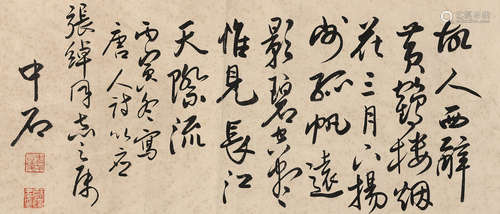 故人西辞
黄鹤楼烟
花三月下扬
州孤帆远
影碧空尽
惟见长江
天际流
丙寅冬写
唐人诗以应
张绰同志之属
中石